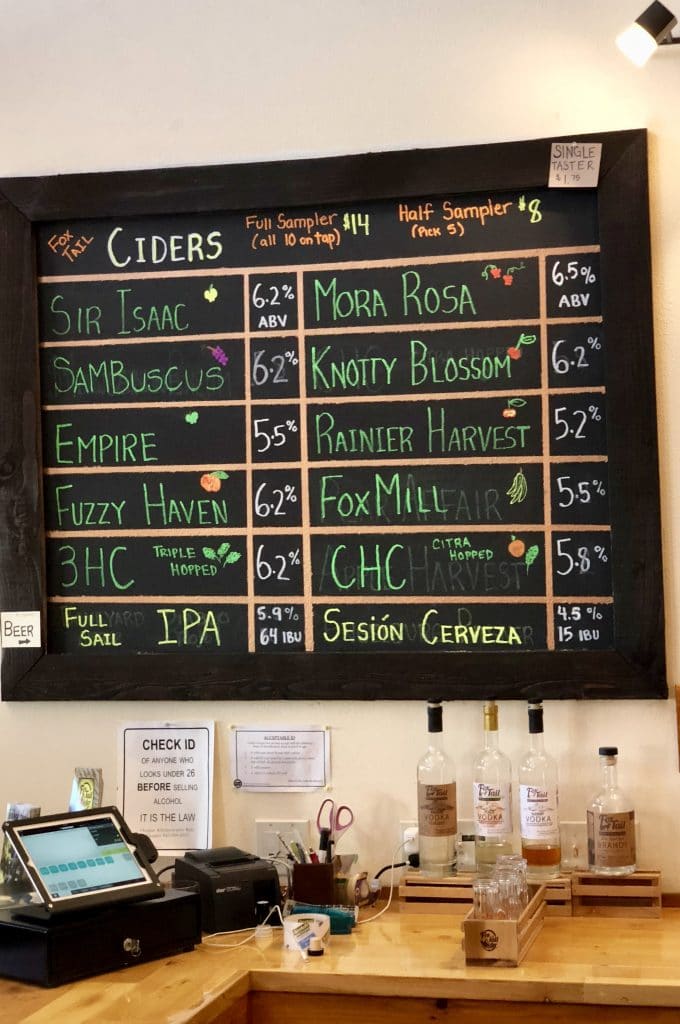 SINGLE
TASTER
$1.75
FOX
TAIL
CIDERS
Full Sampler $14
(all 10 on tap)
Half Sampler $8
(Pick 5)
SIR ISAAC 6.2% ABV
MORA ROSA 6.5% ABV
SAMBUSCUS 6.2%
KNOTTY BLOSSOM 6.2%
EMPIRE 5.5%
RAINIER HARVEST 5.2%
FUZZY HAVEN 6.2%
FOX MILL 5.5%
3HC TRIPLE HOPPED 6.2%
CHC CITRA HOPPED 5.8%
BEER
FULL SAIL IPA 5.9% 64 IBU
SESIÓN CERVEZA 4.5% 15 IBU
CHECK ID
OF ANYONE WHO
LOOKS UNDER 26
BEFORE SELLING
ALCOHOL
IT IS THE LAW
ACCEPTABLE ID
Fox Tail
VODKA
Fox Tail
VODKA
Fox Tail
BRANDY
Fox Tail